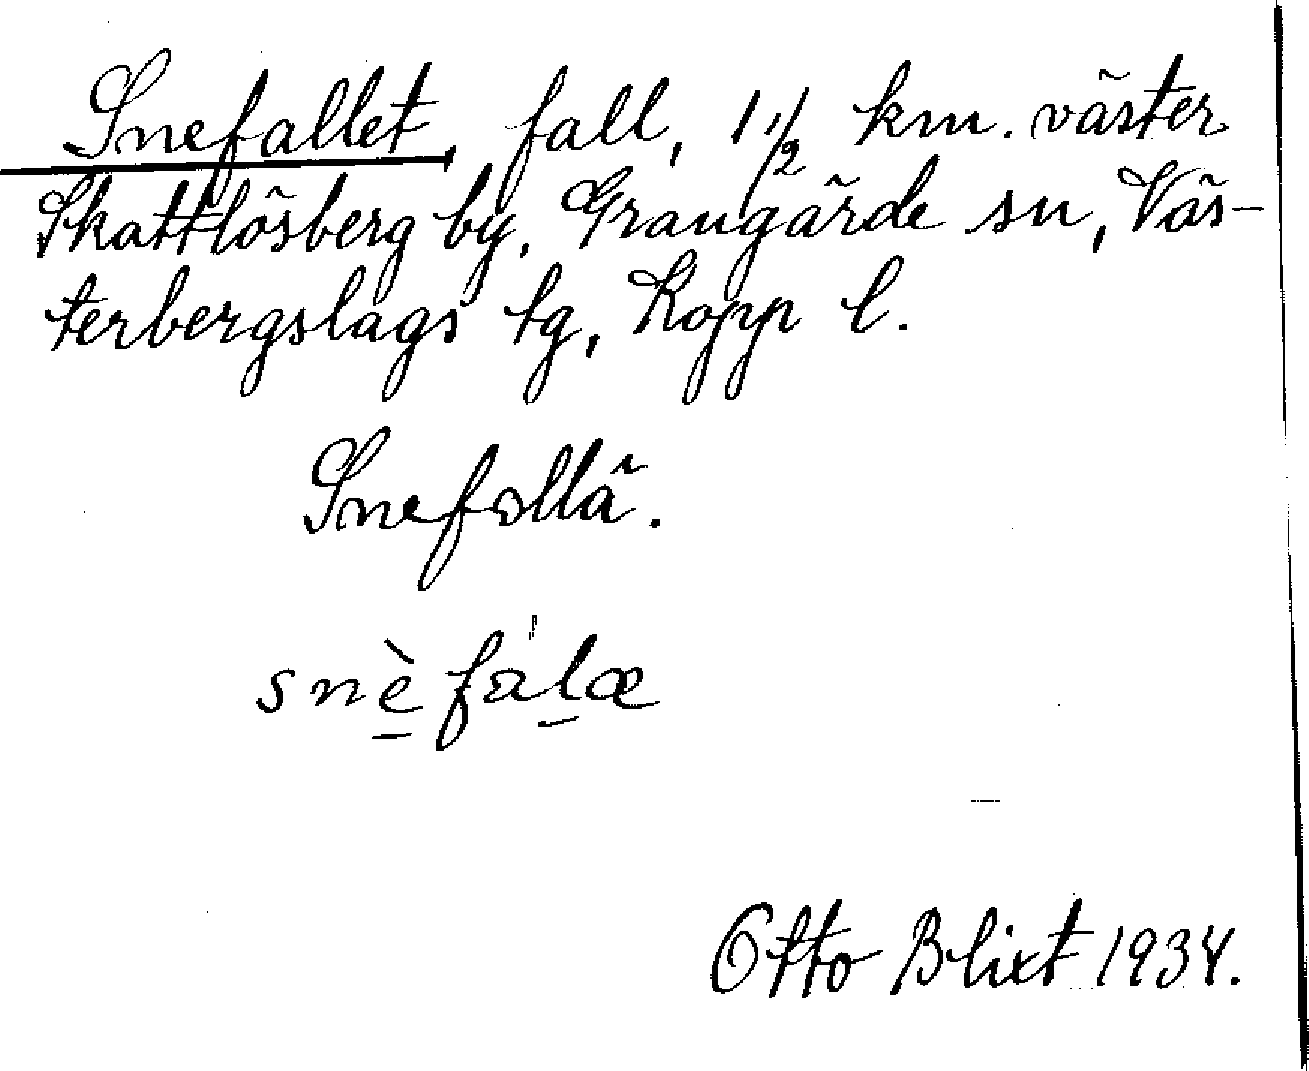 Snefallet, fall, 1 1/2 km. väster
Skattlösberg by, Grangärde sn, Väs-
terbergslags tg, Kopp l.
Snefallä.
snèfalæ
Otto Blixt 1934.